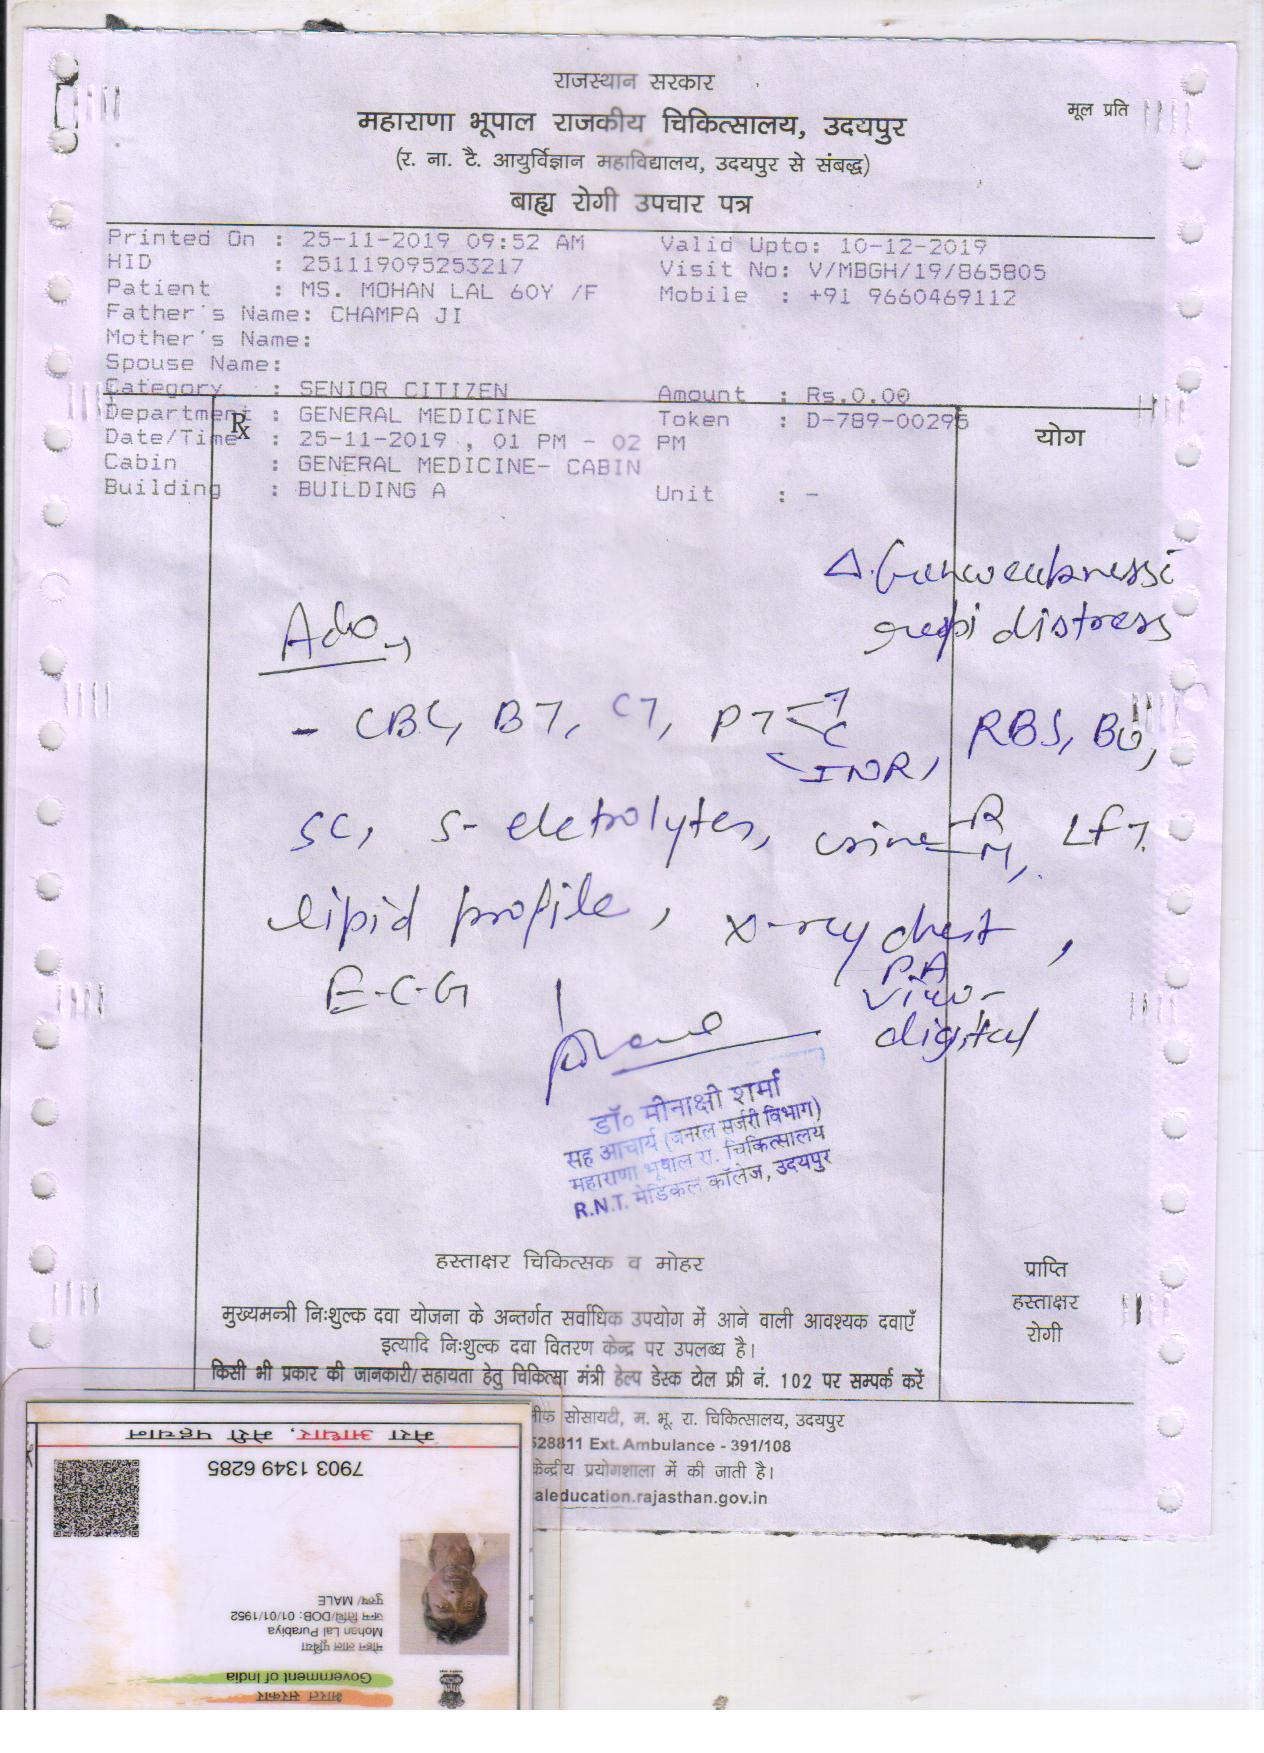 राजस्थान सरकार
मूल प्रति
महाराणा भूपाल राजकीय चिकित्सालय, उदयपुर
(र. ना. टै. आयुर्विज्ञान महाविद्यालय, उदयपुर से संबद्ध)
बाह्य रोगी उपचार पत्र
Printed On : 25-11-2019 09:52 AM Valid Upto: 10-12-2019
HID : 251119095253217 Visit No: V/MBGH/19/865805
Patient : MS. MOHAN LAL 60Y /F Mobile : +91 9660469112
Father's Name: CHAMPA JI
Mother's Name:
Spouse Name:
Category : SENIOR CITIZEN Amount : Rs.0.00
Department : GENERAL MEDICINE Token : D-789-00295
Rx
योग
Date/Time : 25-11-2019 , 01 PM - 02 PM
Cabin : GENERAL MEDICINE- CABIN
Building : BUILDING A Unit : -
Δ. Gen weakness c
respi distress
Adv
- CBC, BT, CT, PT < T C INR, RBS, BU,
SC, S-eletrolytes, urine R M, LFT,
lipid profile, x-ray chest,
P.A
view-
digital
E-C-G
डॉ० मीनाक्षी शर्मा
सह आचार्य (जनरल सर्जरी विभाग)
महाराणा भूपाल रा. चिकित्सालय
R.N.T. मेडिकल कॉलेज, उदयपुर
हस्ताक्षर चिकित्सक व मोहर
प्राप्ति
हस्ताक्षर
रोगी
मुख्यमन्त्री निःशुल्क दवा योजना के अन्तर्गत सर्वाधिक उपयोग में आने वाली आवश्यक दवाएँ
इत्यादि निःशुल्क दवा वितरण केन्द्र पर उपलब्ध है।
किसी भी प्रकार की जानकारी/सहायता हेतु चिकित्सा मंत्री हेल्प डेस्क टोल फ्री नं. 102 पर सम्पर्क करें
सोसायटी, म. भू. रा. चिकित्सालय, उदयपुर
528811 Ext. Ambulance - 391/108
केन्द्रीय प्रयोगशाला में की जाती है।
aleducation.rajasthan.gov.in
भारत सरकार
Government of India
मोहन लाल पुर्बिया
Mohan Lal Purabiya
जन्म तिथि/DOB: 01/01/1952
पुरुष/ MALE
7903 1349 6285
मेरा आधार, मेरी पहचान